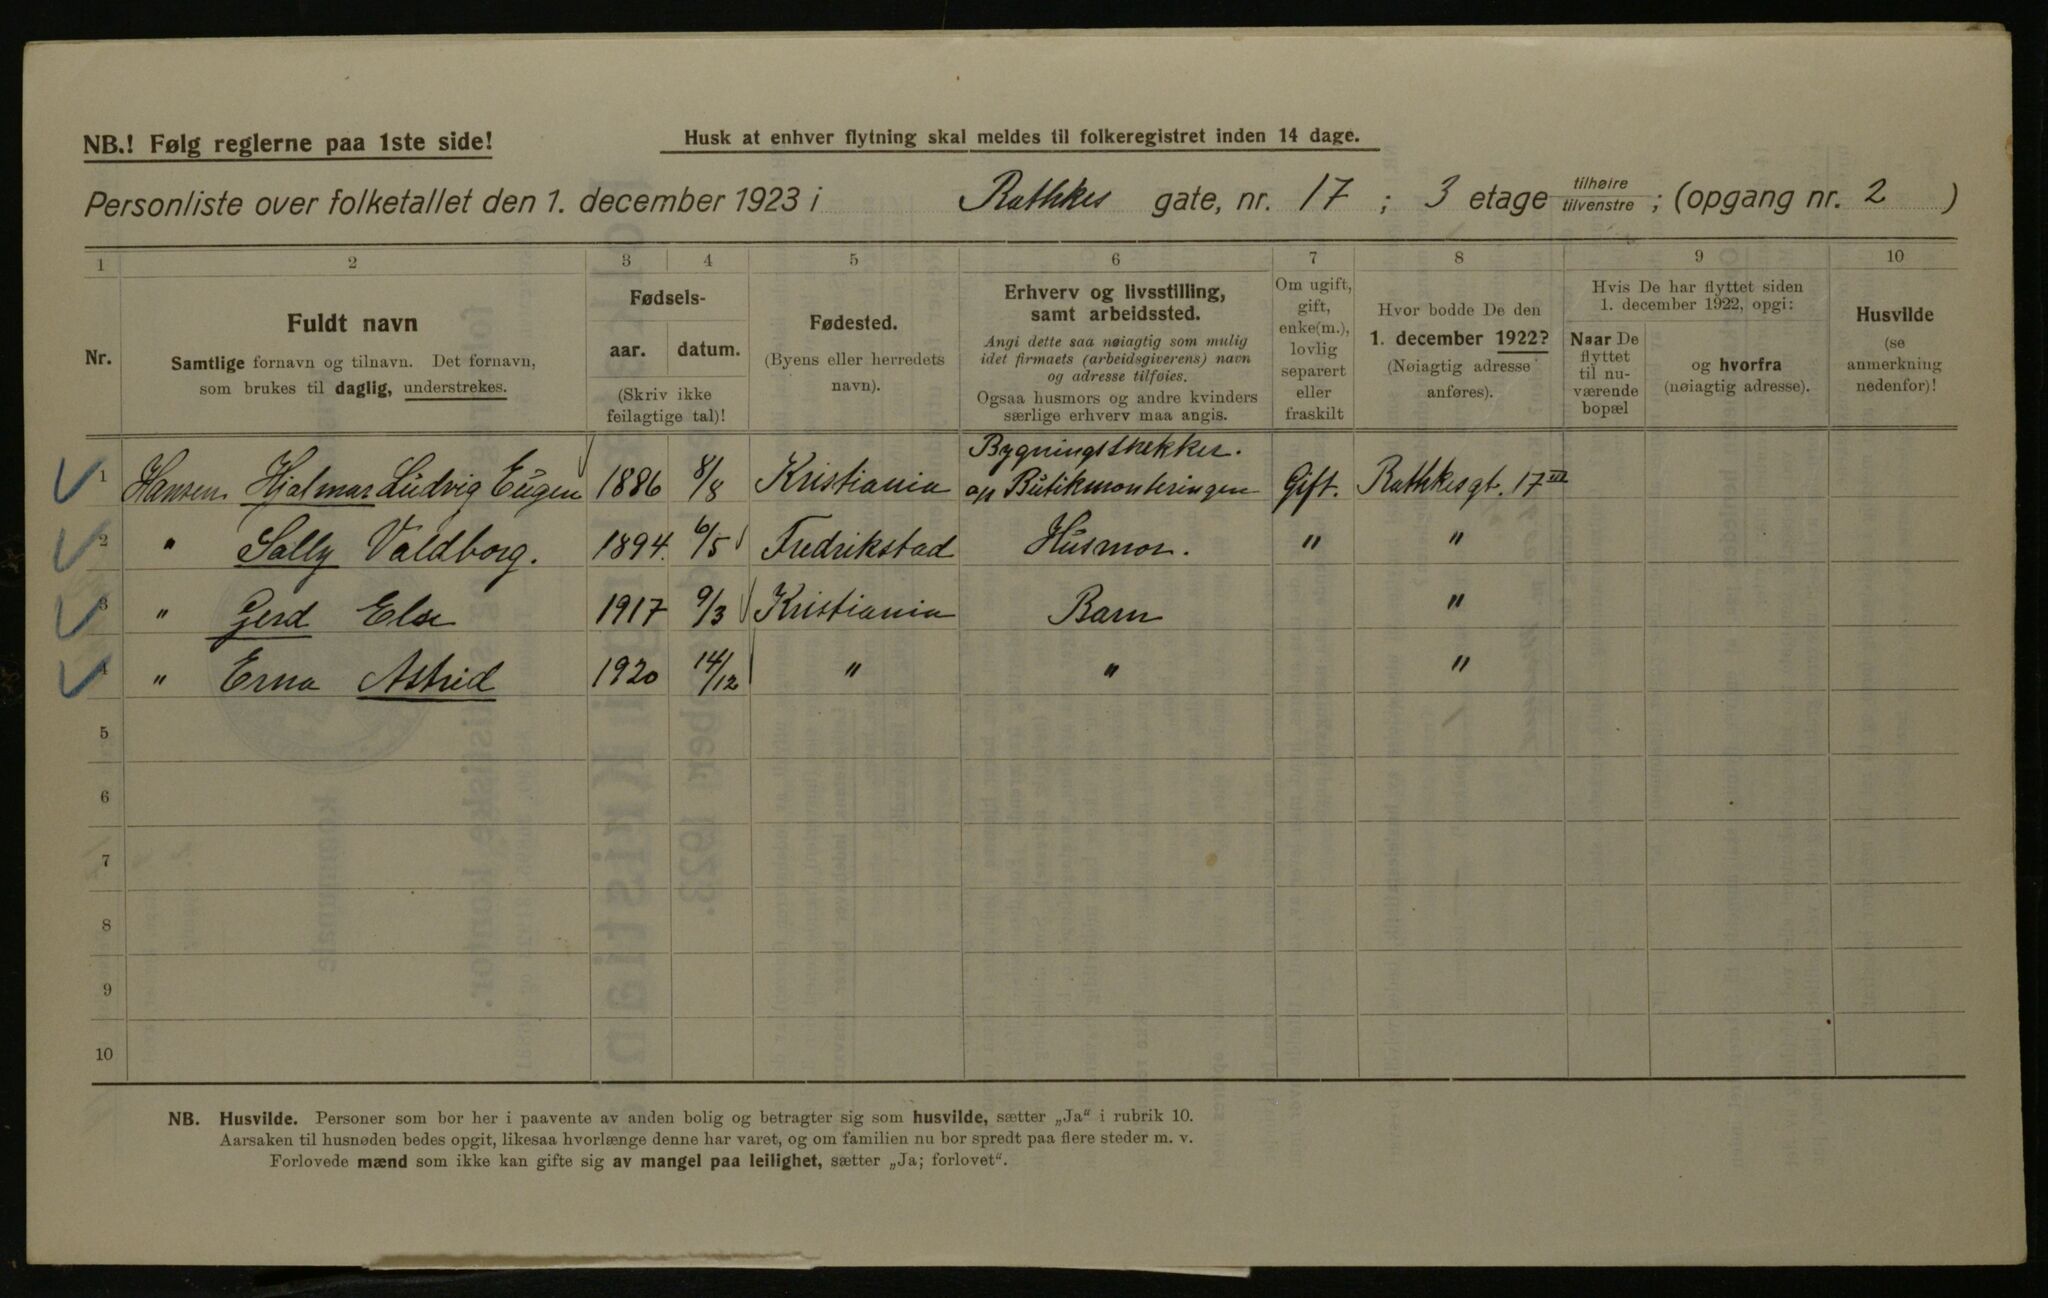 NB.! Følg reglerne paa 1ste side!
Husk at enhver flytning skal meldes til folkeregistret inden 14 dage.
Personliste over folketallet den 1. december 1923 i Rathkes gate, nr. 17 ; 3 etage tilhøire tilvenstre ; (opgang nr. 2 )
1 2 3 4 5 6 7 8 9 10
Nr.
Fuldt navn
Samtlige fornavn og tilnavn. Det fornavn,
som brukes til daglig, understrekes.
Fødsels-
aar. datum.
(Skriv ikke
feilagtige tal)!
Fødested.
(Byens eller herredets
navn).
Erhverv og livsstilling,
samt arbeidssted.
Angi dette saa nøiagtig som mulig
idet firmaets (arbeidsgiverens) navn
og adresse tilføies.
Ogsaa husmors og andre kvinders
særlige erhverv maa angis.
Om ugift,
gift,
enke(m.),
lovlig
separert
eller
fraskilt
Hvor bodde De den
1. december 1922?
(Nøiagtig adresse
anføres).
Hvis De har flyttet siden
1. december 1922, opgi:
Naar De
flyttet
til nu-
værende
bopæl
og hvorfra
(nøiagtig adresse).
Husvilde
(se
anmerkning
nedenfor)!
1 Hansen Hjalmar Ludvig Eugen 1886 8/8 Kristiania Bygningssnekker.
Butikmonteringen Gift. Rathkesgt. 17 III
2 " Sally Valdborg. 1894. 6/5 Fredrikstad Husmor. " "
3 " Gerd Else 1917 9/3 Kristiania Barn "
4 " Erna Astrid 1920 14/12 " " "
5
6
7
8
9
10
NB. Husvilde. Personer som bor her i paavente av anden bolig og betragter sig som husvilde, sætter „Ja“ i rubrik 10.
Aarsaken til husnøden bedes opgit, likesaa hvorlænge denne har varet, og om familien nu bor spredt paa flere steder m. v.
Forlovede mænd som ikke kan gifte sig av mangel paa leilighet, sætter „Ja; forlovet“.